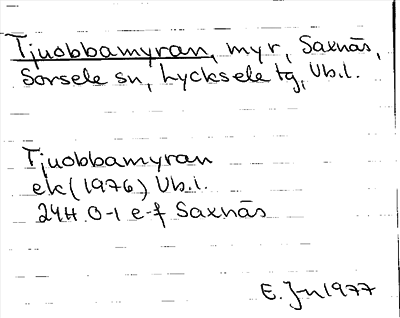 Tjuobbamyran, myr, Saxnäs,
Sorsele sn, Lycksele tg, Vb.l.
Tjuobbamyran
ek (1976) Vb.l.
24H. 0-1 e-f Saxnäs
E. J-n 1977